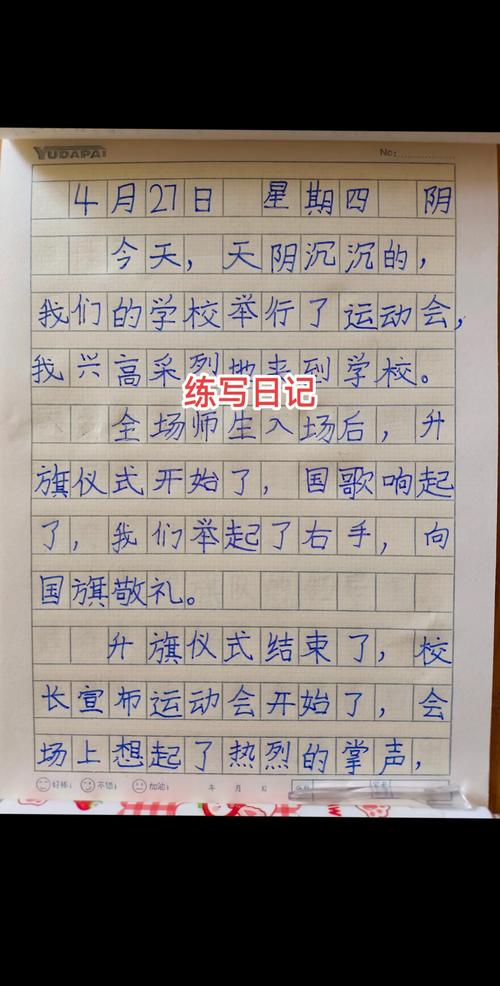 YUDAPAI
No:
4月27日 星期四 阴
今天，天阴沉沉的，
我们的学校举行了运动会，
我兴高采烈地来到学校。
练写日记
全场师生入场后，升
旗仪式开始了，国歌响起
了，我们举起了右手，向
国旗敬礼。
升旗仪式结束了，校
长宣布运动会开始了，会
场上想起了热烈的掌声，
好棒： 不错： 加油： 年 月 日